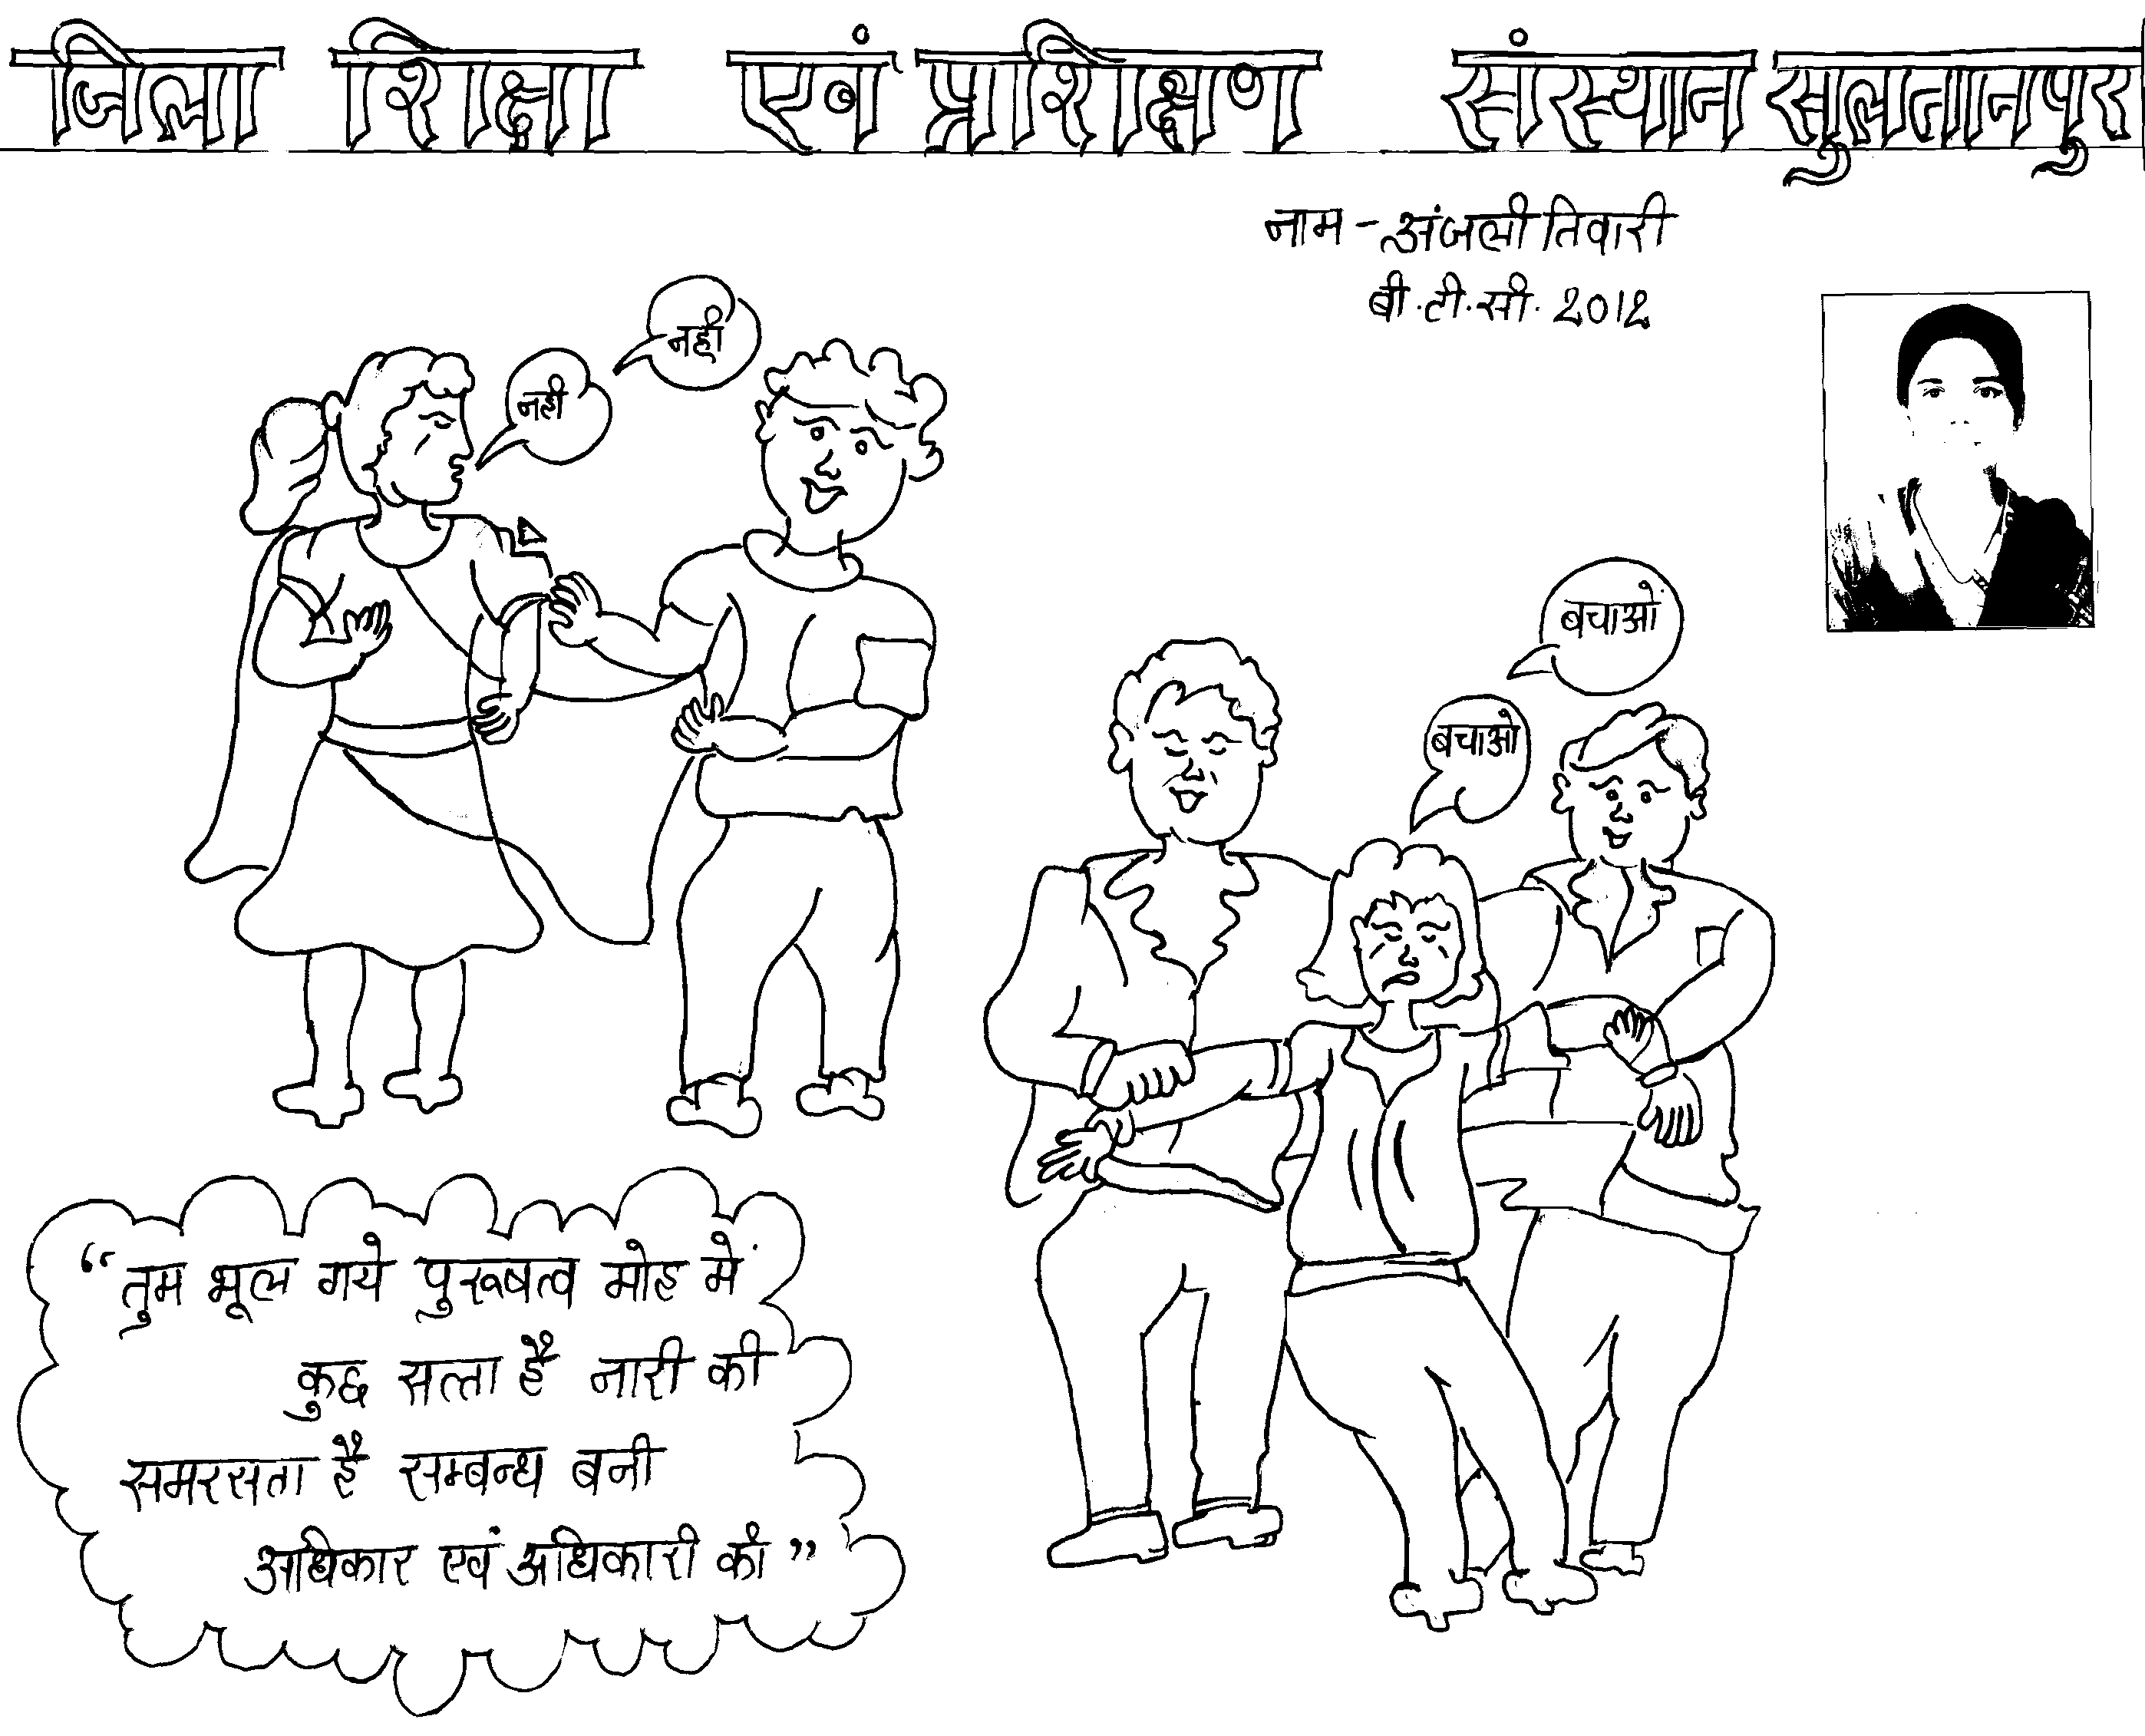 जिला शिक्षा एवं प्राशिक्षण संस्थान सुलतानपुर
नाम - अंजली तिवारी
बी.टी.सी. 2012
नहीं
नही
बचाओं
बचाओ
“तुम भूल गये पुरूषत्व मोह में
कुछ सत्ता है नारी की
समरसता है सम्बन्ध बनी
अधिकार एवं अधिकारी की”